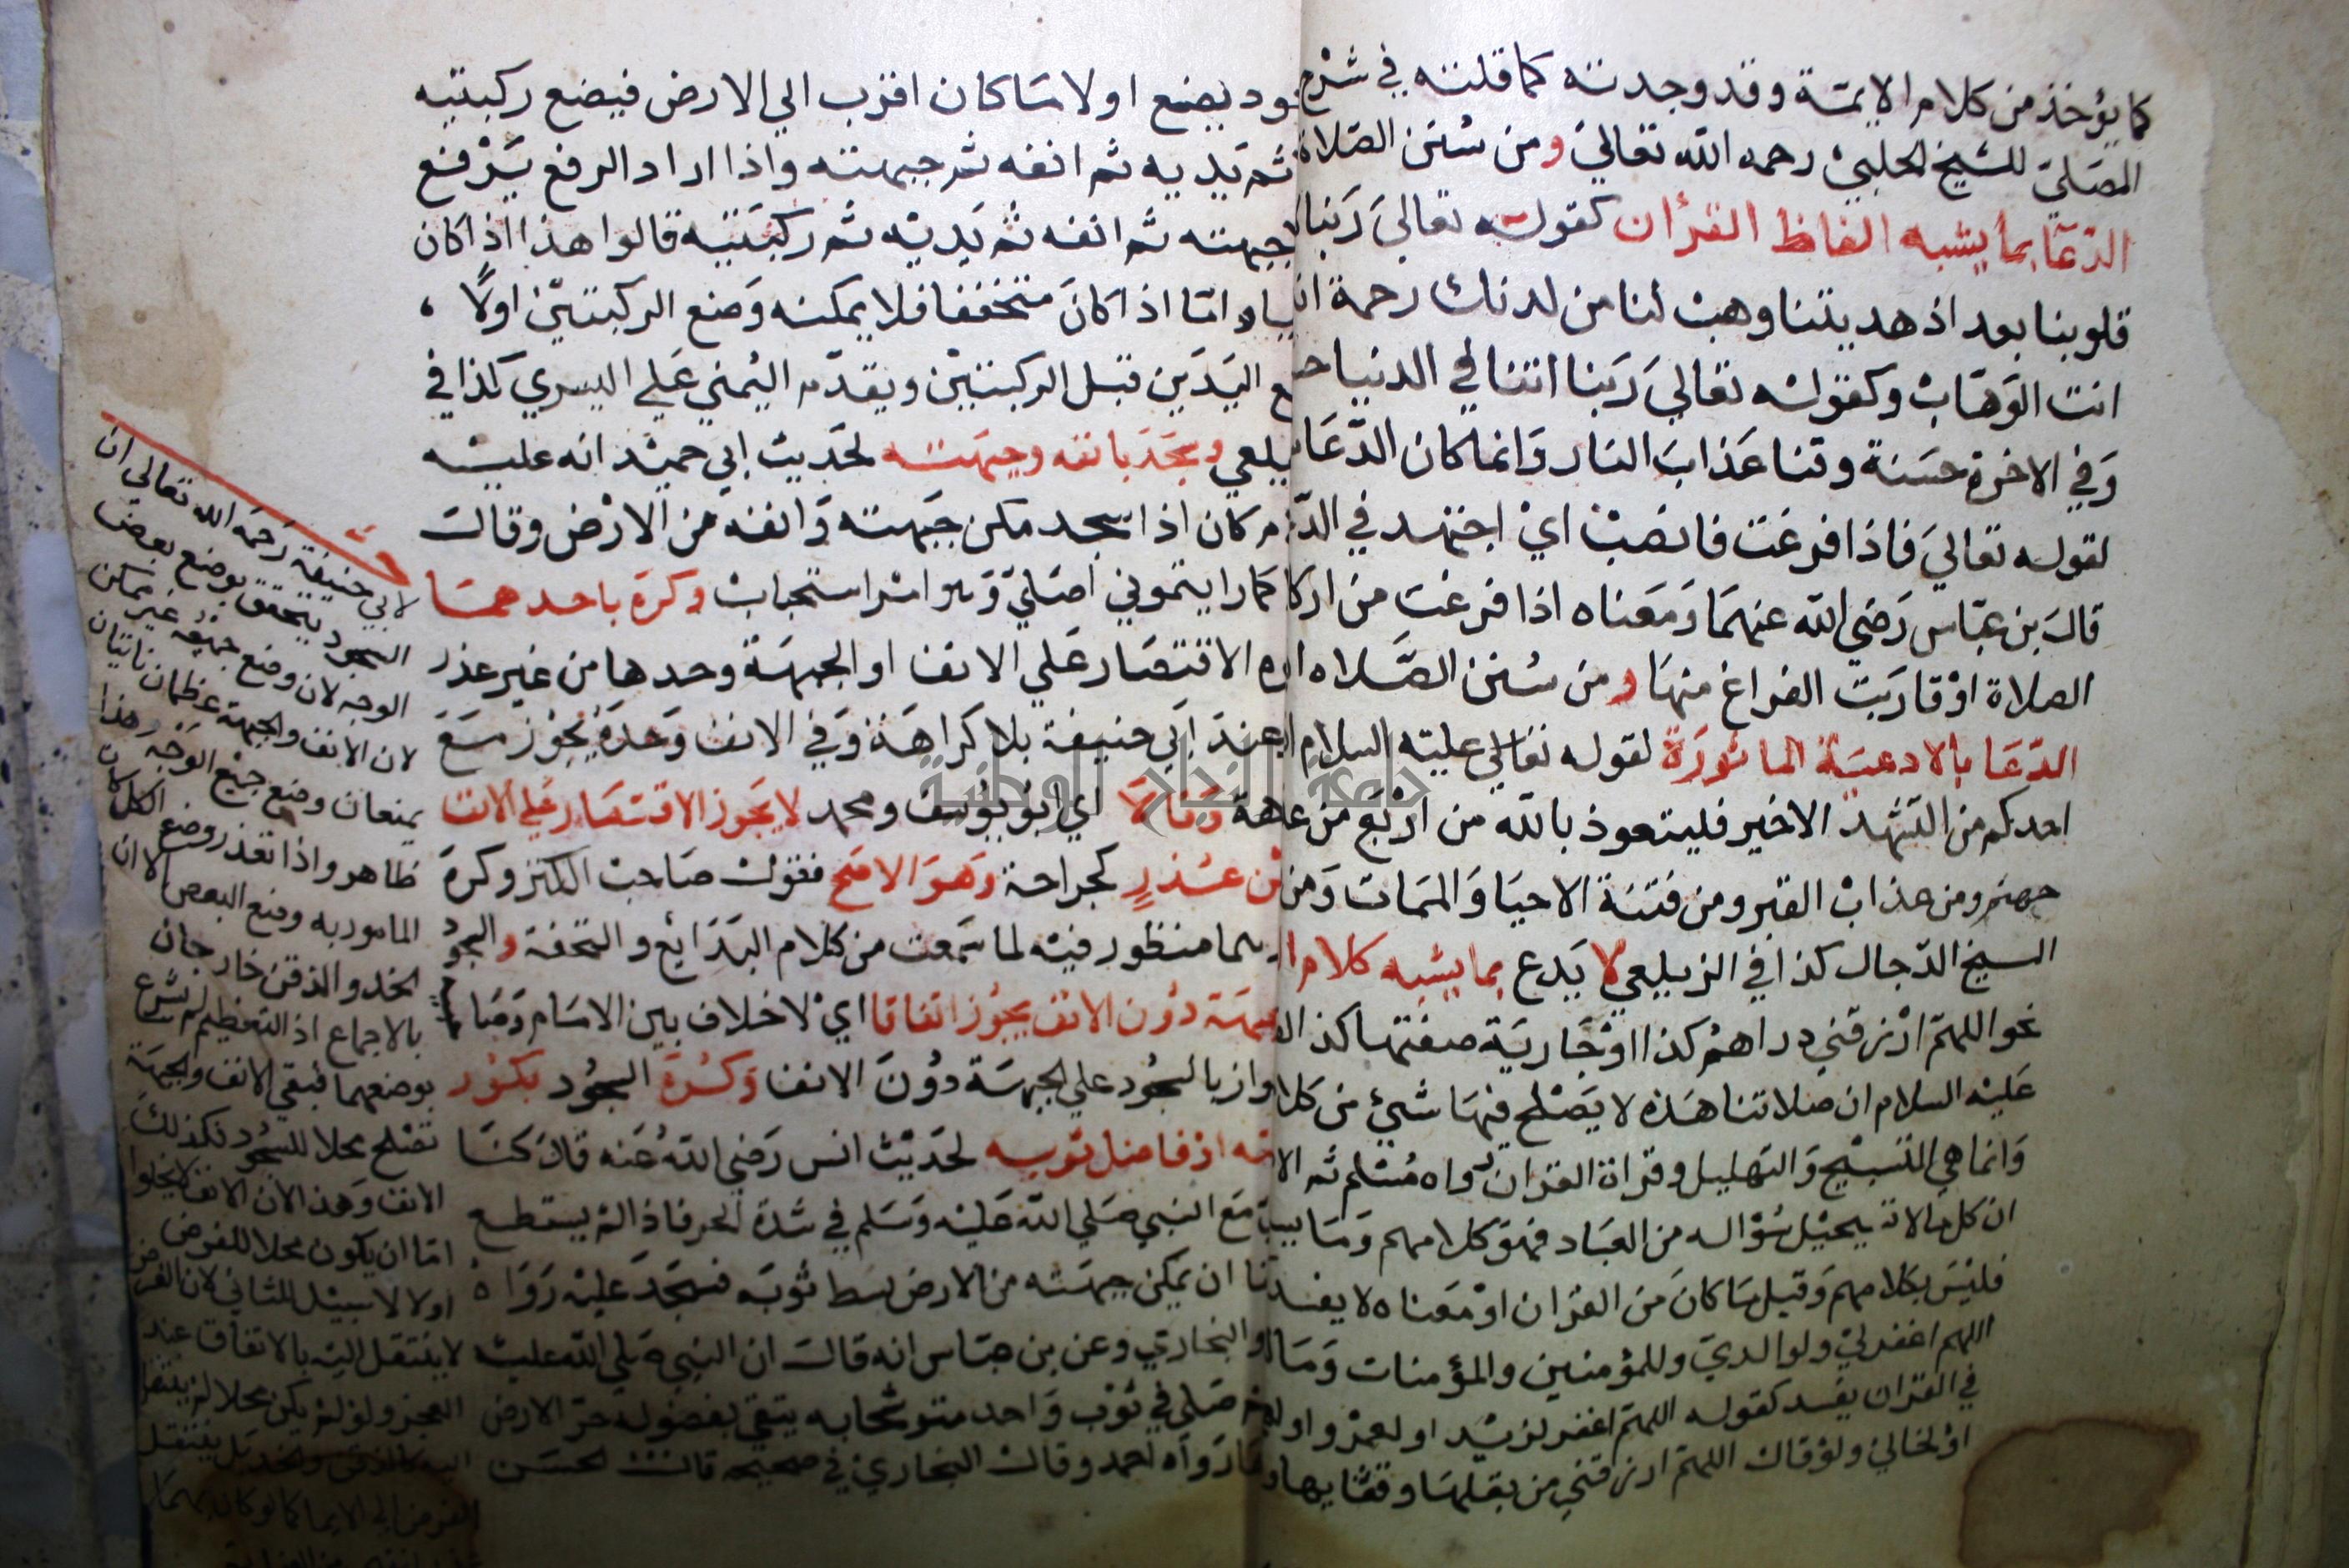 كما يؤخذ من كلام الايمة وقد وجدته كما قلته في شرح
المصلي للشيخ الحلبي رحمه الله تعالي ومن سنن الصلاة
الدعا بما يشبه الفاظ القران كقوله تعالي ربنا لا
قلوبنا بعد اذ هديتنا وهب لنا من لدنك رحمة ان
انت الوهاب وكقوله تعالي ربنا اتنا في الدنيا
وفي الاخرة حسنة وقنا عذاب النار وانما كان الدعا
لقوله تعالي فاذا فرغت فانصب اي اجتهد في
قال بن عباس رضي الله عنهما ومعناه اذا فرغت من
الصلاة او قاربت الفراغ منها ومن سنن الصلاه
الدعا بالادعية الماثورة لقوله تعالي عليه السلام
احدكم من التشهد الاخير فليتعوذ بالله من اربع من
جهنم ومن عذاب القبر ومن فتنة الاحيا والممات ومن
المسيخ الدجال كذا في الزيلعي لا يدع بما يشبه كلام
نحو اللهم ارزقني دراهم كذا او جارية صفتها كذا
عليه السلام ان صلاتنا هذه لا يصلح فيها شيئ من
وانما هي التسبيح والتهليل وقراة القران رواه مسلم ثم
ان كل ما لا يستحيل سؤاله من العباد فهو كلامهم وما
فليس بكلامهم وقيل ما كان من القران او معناه لا يفسد
اللهم اغفر لي ولوالدي وللمؤمنين والمؤمنات وما
في القران يفسد كقوله اللهم اغفر لزيد او لعمرو او
او لخالي ولو قال اللهم ارزقني من بقلها وقثايها
يضع اولا ما كان اقرب الي الارض فيضع ركبتيه
ثم يديه ثم انفه ثم جبهته واذا اراد الرفع يرفع
جبهته ثم انفه ثم يديه ثم ركبتيه قالوا هذا اذا كان
واما اذا كان متخففا فلا يمكنه وضع الركبتين اولا
اليدين قبل الركبتين ويقدم اليمني علي اليسري كذا في
ويسجد بانفه وجبهته لحديث ابي حميد انه عليه
كان اذا سجد مكن جبهته وانفه من الارض وقال
كما رايتموني اصلي وهو امر استحباب وكره باحدهما
الاقتصار علي الانف او الجبهة وحدها من غير عذر
عند ابي حنيفة بلا كراهة وفي الانف وحده يجوز مع
وقالا اي ابو يوسف ومحمد لا يجوز الاقتصار علي الانف
من عذر كجراحة وهو الاصح فقول صاحب الكنز وكره
منظور فيه لما سمعت من كلام البدايع والتحفة والسجود
دون الانف يجوز اتفاقا اي لا خلاف بين الامام
بالسجود علي الجبهة دون الانف وكره السجود بكور
او فاضل ثوبه لحديث انس رضي الله عنه قال كنا
مع النبي صلي الله عليه وسلم في شدة الحر فاذا لم يستطع
ان يمكن جبهته من الارض بسط ثوبه فسجد عليه رواه
البخاري وعن بن عباس انه قال ان النبي صلي الله عليه
صلي في ثوب واحد متوشحا به يتقي بفضوله حر الارض
رواه احمد وقال البخاري في صحيحه قال الحسن
لابي حنيفة رحمه الله تعالي ان
السجود يتحقق بوضع بعض
الوجه لان وضع جميعه غير ممكن
لان الانف والجبهة عظمان ناتيان
يمنعان وضع جميع الوجه وهذا
ظاهر واذا تعذر وضع الكل كان
المامور به وضع البعض الا ان
الخد والذقن خارجان
بالاجماع اذ التعظيم لم يشرع
بوضعهما فبقي الانف والجبهة
تصلح محلا للسجود فكذلك
الانف وهذا لان الانف لا يخلوا
اما ان يكون محلا للفرض
اولا لا سبيل للثاني لان الفرض
لا ينتقل اليه بالاتفاق عند
العجز ولو لم يكن محلا لم ينتقل